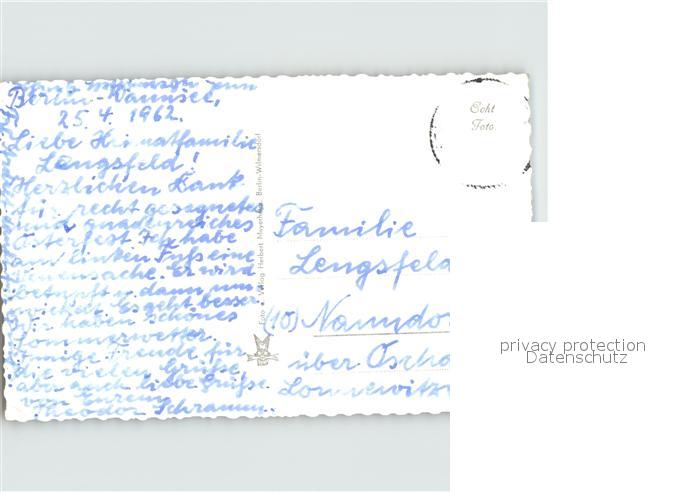 Berlin-Wannsee,
25.4.1962.
Liebe Heimatfamilie
Lengsfeld!
Herzlichen Dank
für recht gesegnetes
und gnadenreiches
Osterfest. Ich habe
am linken Fuß eine
Er wird
dann
Es geht besser
Wir haben schönes
Sommerwetter.
Innige Freude für
die vielen Grüße
aber auch liebe Grüße
von Eurem
Theodor Schramm.
Foto u. Verlag Herbert Meyerheim, Berlin-Wilmersdorf
Echt
Foto
Familie
Lengsfeld
(10) Naundo
über Oscha
privacy protection
Datenschutz